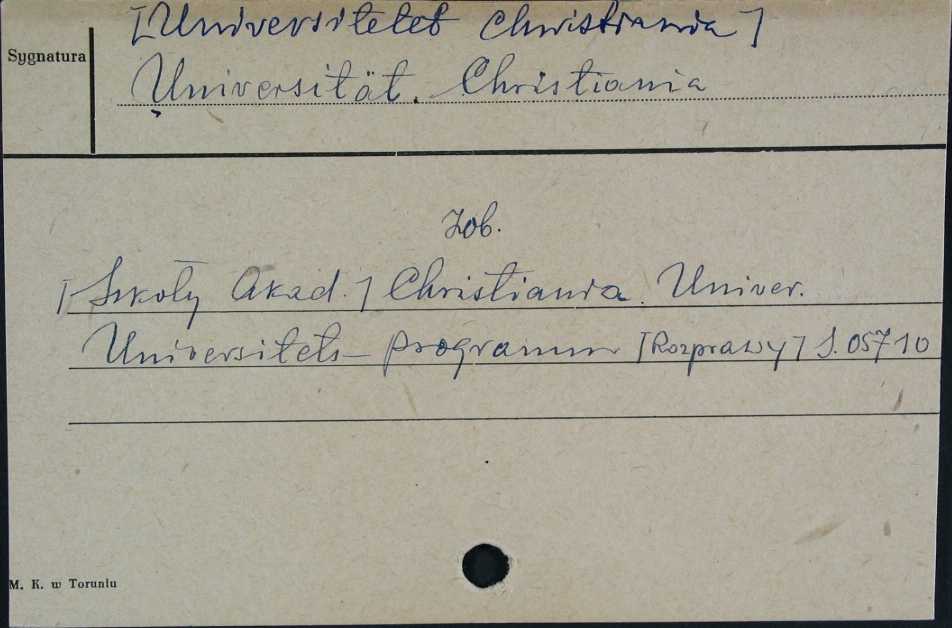 [Universitetet Christiania]
Sygnatura
Universität. Christiania
Zob.
[Szkoły Akad.] Christiania. Univer.
Universitets-programm [Rozprawy] S. 05710
M. K. w Toruniu